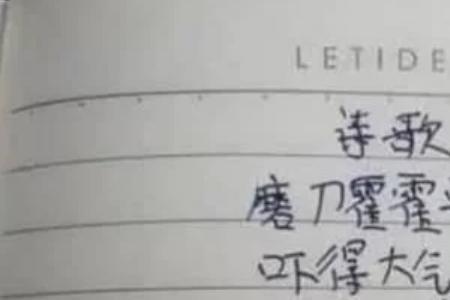 LETIDE
诗歌
磨刀霍霍
吓得大气